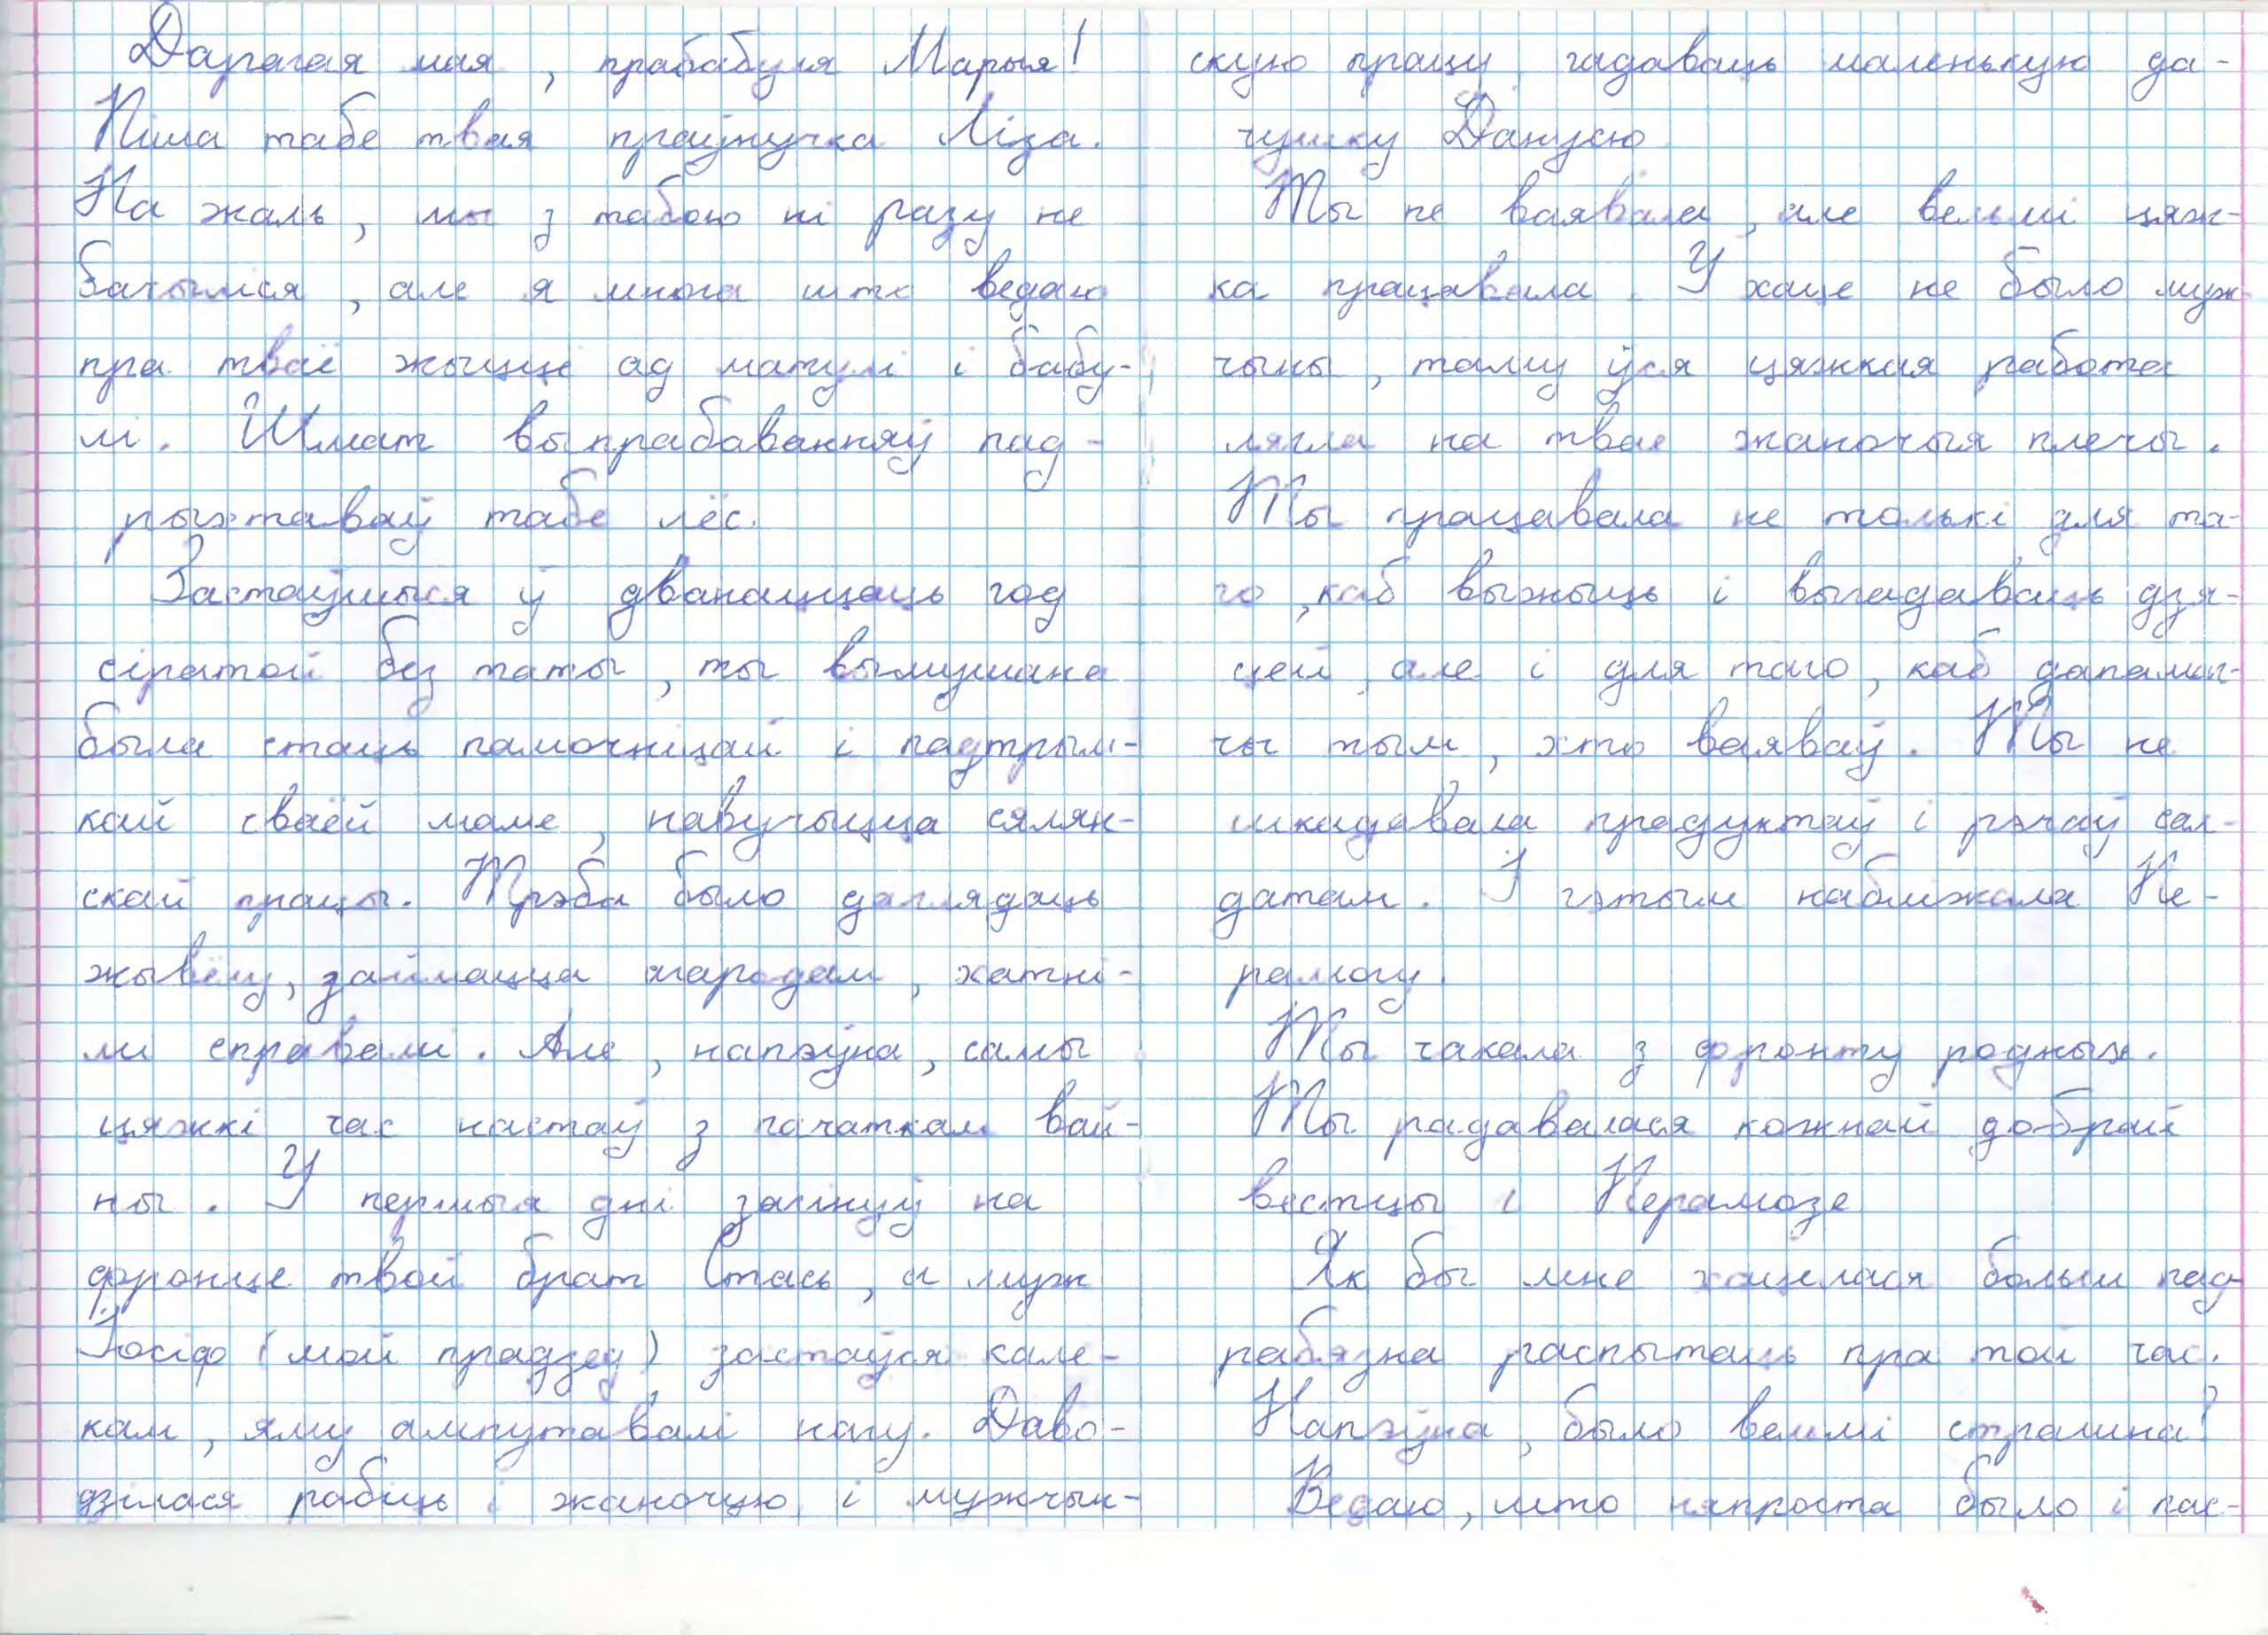 Дарагая мая, прабабуля Марыя!
Піша табе твая праўнучка Ліза.
На жаль, мы з табою ні разу не
бачыліся, але я многа што ведаю
пра тваё жыццё ад матулі і бабу-
лі. Шмат выпрабаванняў пад-
рыхтаваў табе лёс.
Застаўшыся ў дванаццаць год
сіратой без таты, ты вымушана
была стаць памочніцай і падтрым-
кай сваёй маме, навучыцца сялян-
скай працы. Трэба было даглядаць
жывёлу, займацца агародам, хатні-
мі справамі. Але, напэўна, самы
цяжкі час настаў з пачаткам вай-
ны. У першыя дні загінуў на
фронце твой брат Стась, а муж
Іосіф (мой прадзед) застаўся кале-
кам, яму ампутавалі нагу. Даво-
дзілася рабіць і жаночую і мужчын-
скую працу, гадаваць маленькую да-
чушку Данусю.
Ты не ваявала, але вельмі цяж-
ка працавала. У хаце не было муж-
чыны, таму ўся цяжкая работа
лягла на твае жаночыя плечы.
Ты працавала не толькі для та-
го, каб выжыць і выгадаваць дзя-
цей, але і для таго, каб дапамаг-
чы тым, хто ваяваў. Ты не
шкадавала прадуктаў і рэчаў сал-
датам. І гэтым набліжала Пе-
рамогу.
Ты чакала з фронту родных.
Ты радавалася кожнай добрай
вестцы і Перамозе.
Як бы мне хацелася больш пад-
рабязна распытаць пра той час.
Напэўна, было вельмі страшна!
Ведаю, што няпроста было і пас-